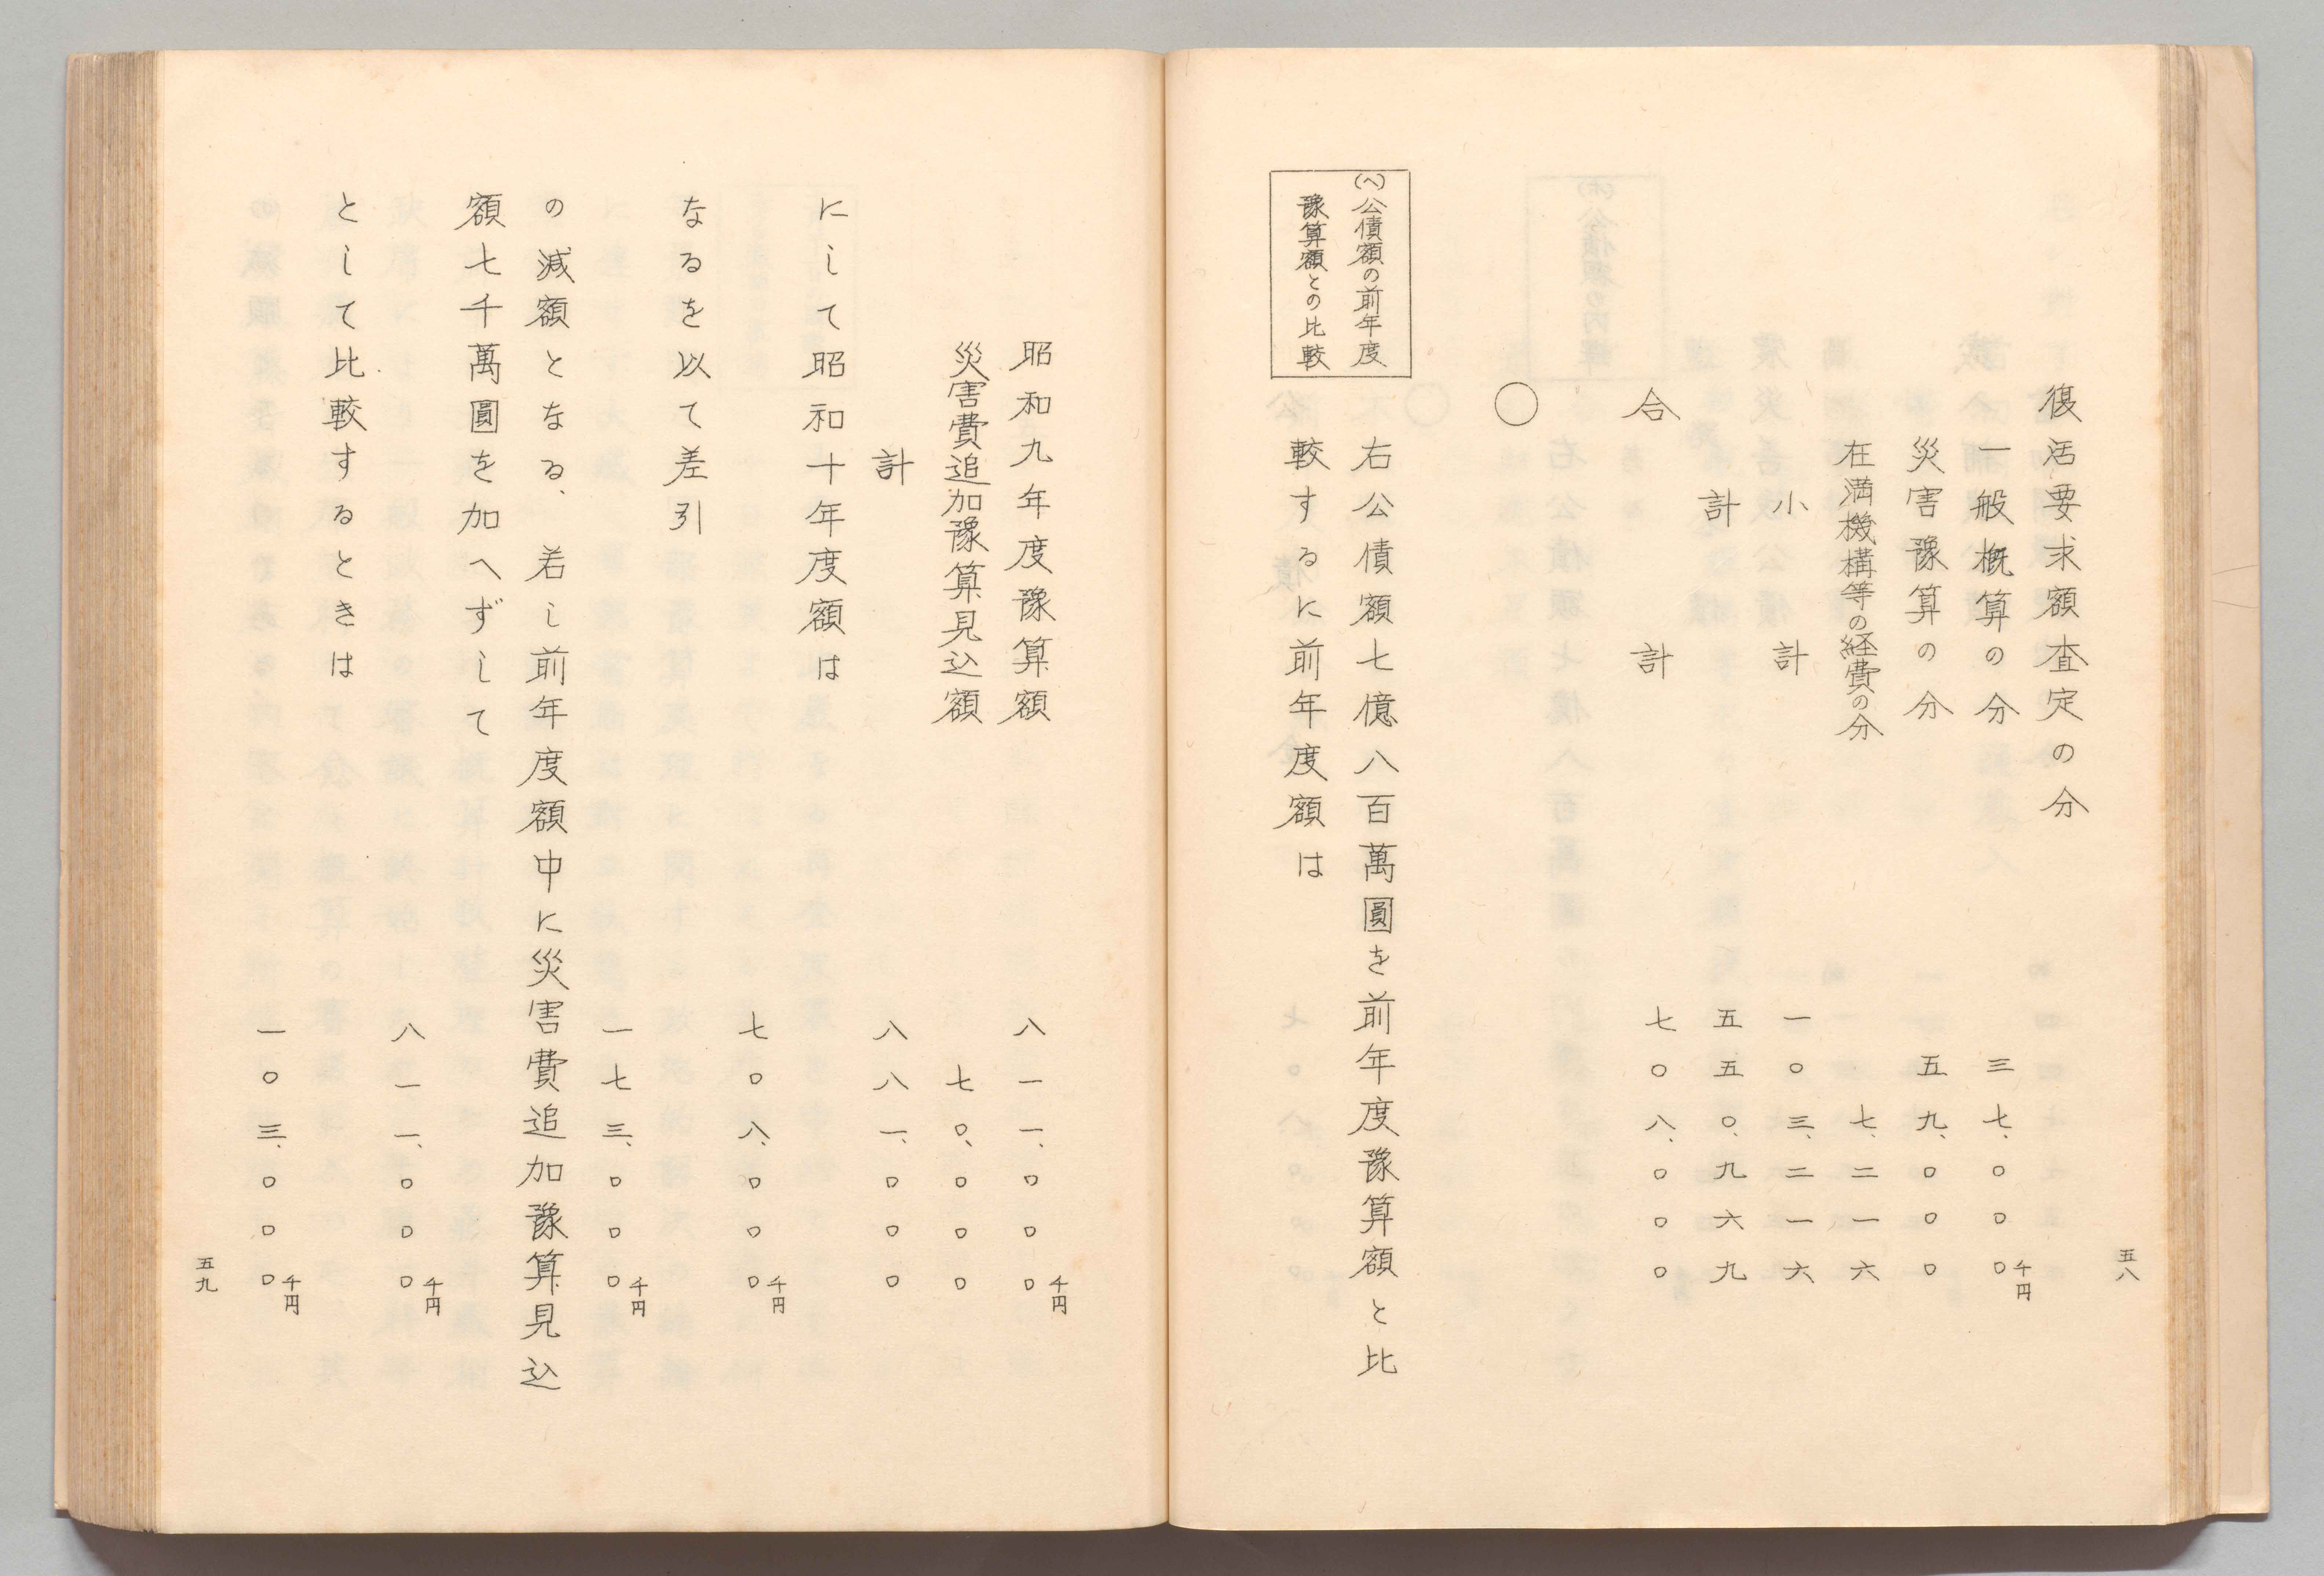 五八
復活要求額査定の分
一般概算の分 三七、〇〇〇千円
災害豫算の分 五九、〇〇〇
在満機構等の経費の分 七、二一六
小計 一〇三、二一六
計 五五〇、九六九
合計 七〇八、〇〇〇
〇
(ヘ)公債額の前年度
豫算額との比較
右公債額七億八百萬圓を前年度豫算額と比
較するに前年度額は
昭和九年度豫算額 八一一、〇〇〇千円
災害費追加豫算見込額 七〇、〇〇〇
計 八八一、〇〇〇
にして昭和十年度額は 七〇八、〇〇〇千円
なるを以て差引 一七三、〇〇〇千円
の減額となる、若し前年度額中に災害費追加豫算見込
額七千萬圓を加へずして 八一一、〇〇〇千円
として比較するときは 一〇三、〇〇〇千円
五九